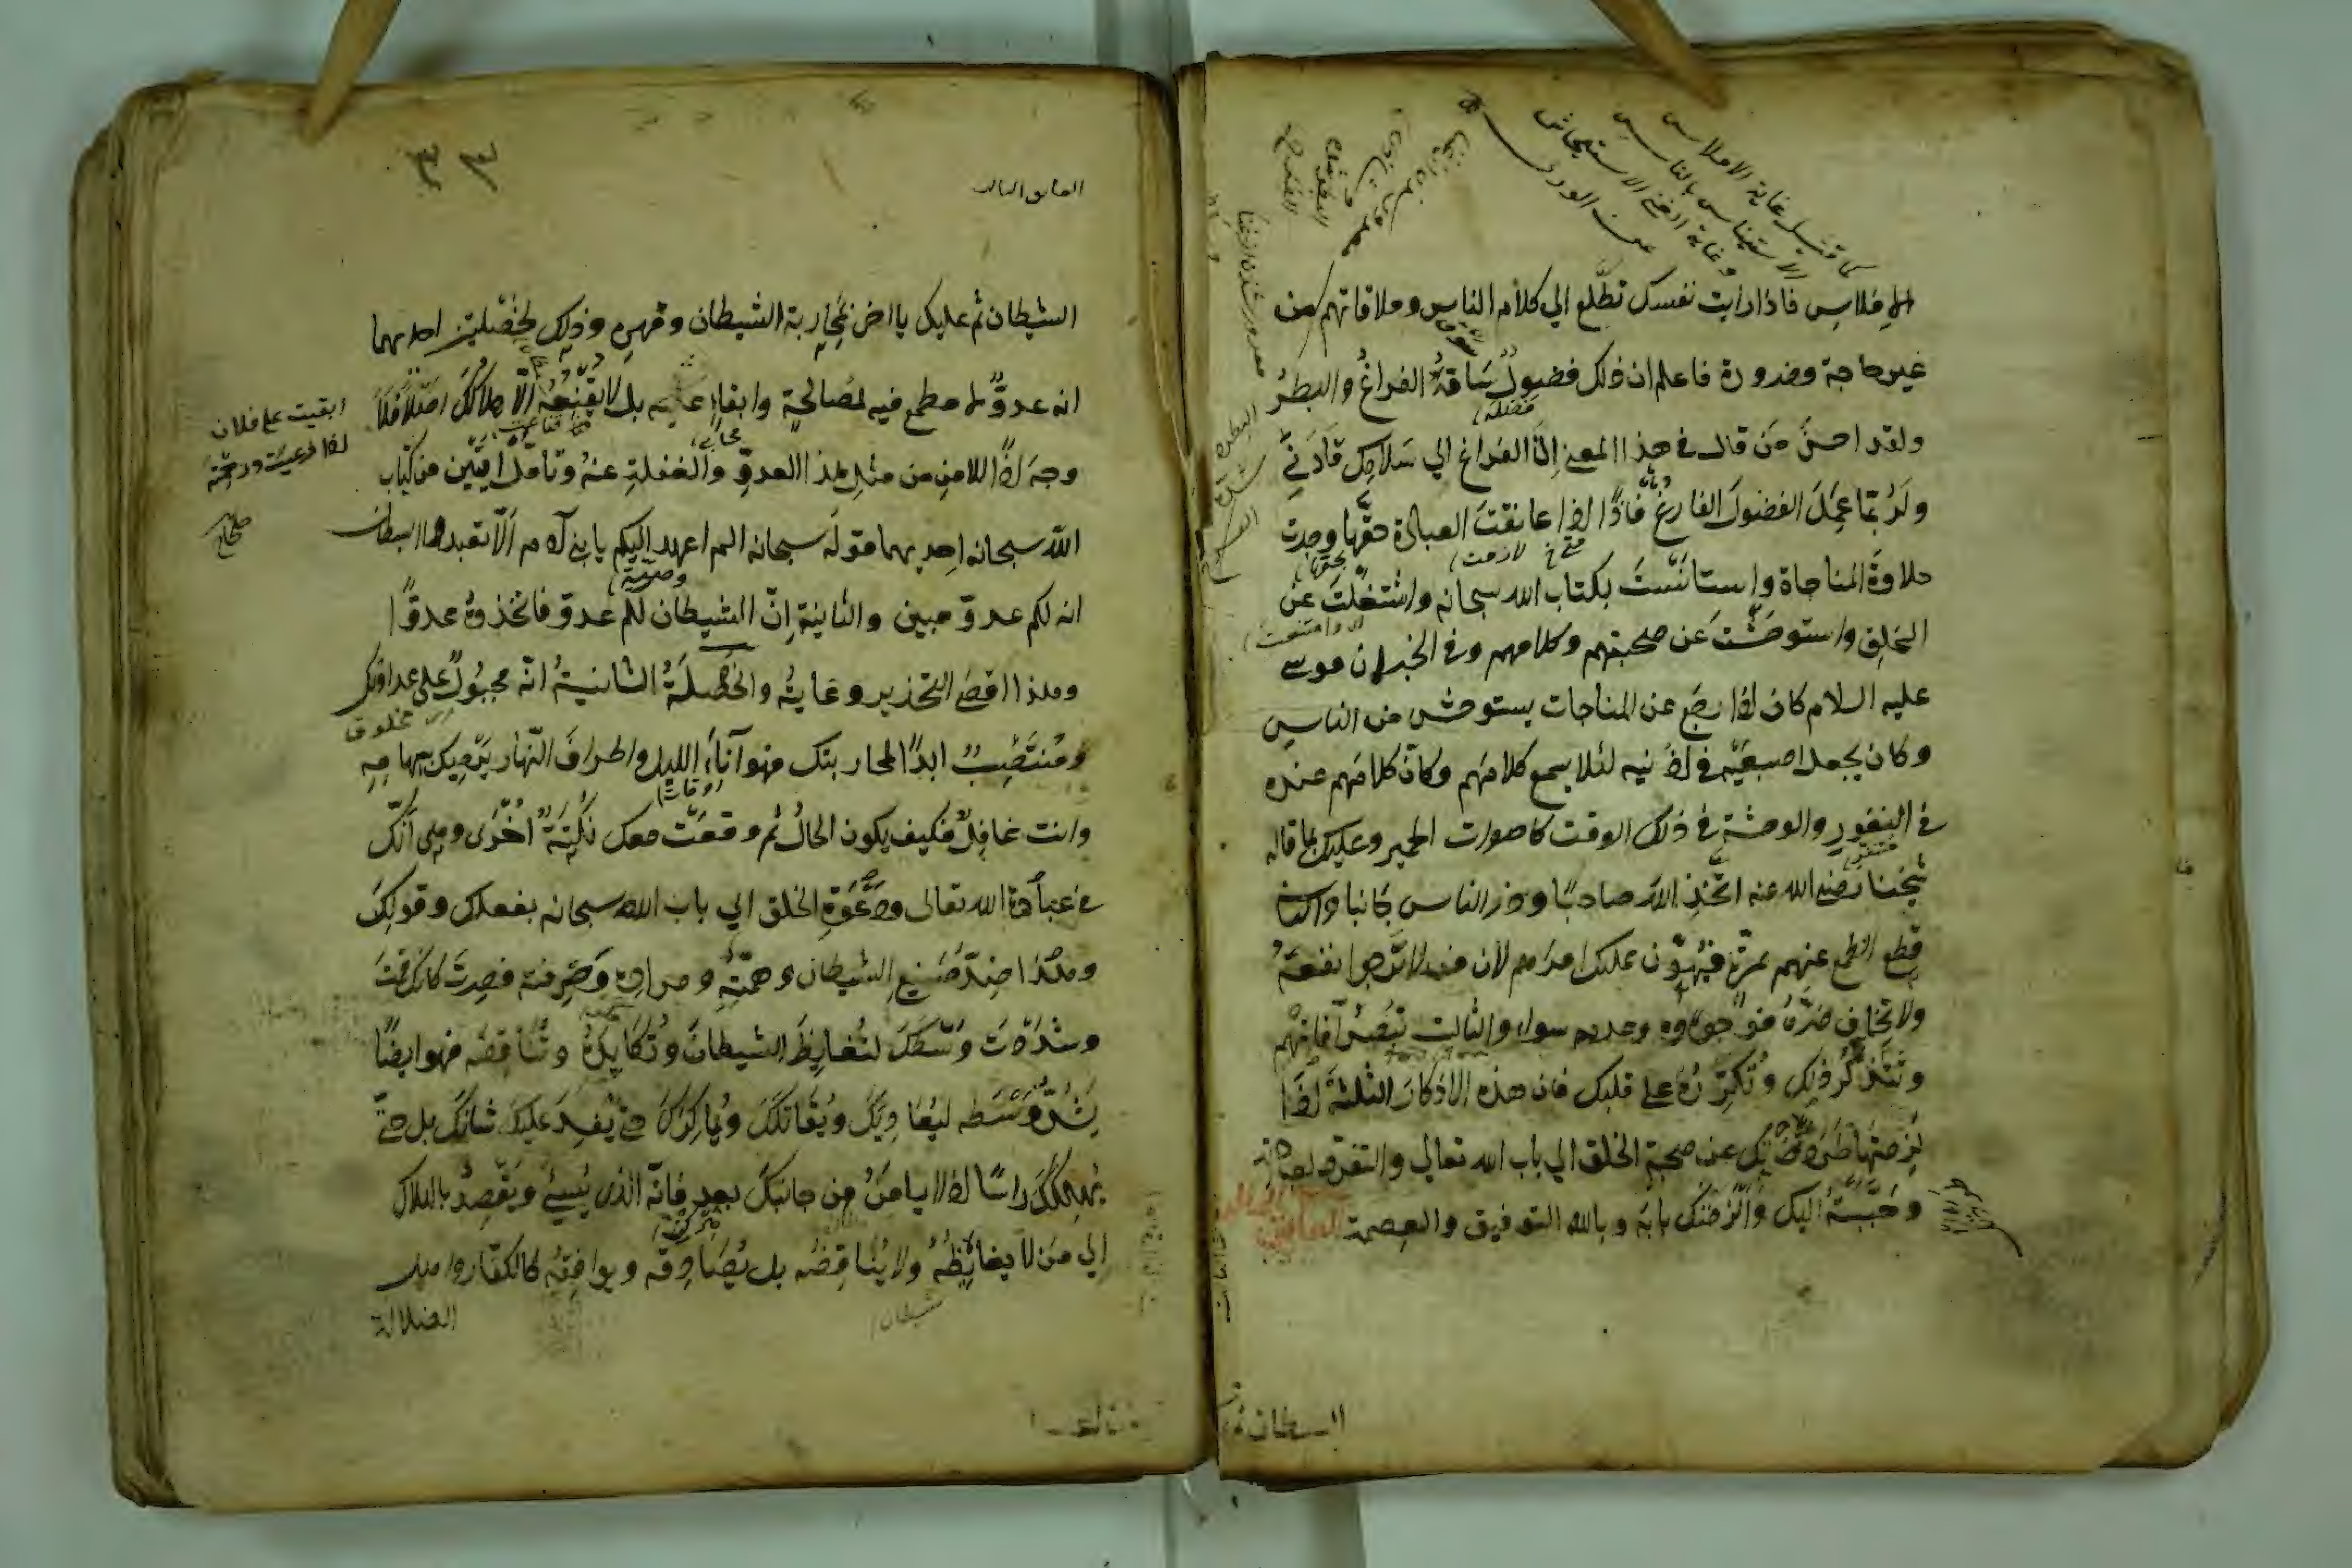 كما قيل غاية الافلاس
الاستيناس بالناس
وغاية الغنى الاستيحاش
عن الورى
الافلاس فاذا رايت نفسك تطلع الي كلام الناس وملاقاتهم من
غير حاجة وضرورة فاعلم ان ذلك فضول ساقه الفراغ والبطر
ولقد احسن من قال في هذا المعنى إن الفراغ الي سلامك قادني
ولربما عمل الفضول الفارغ فاذًا اذا عانقت العبادة حقها وجدت
حلاوة المناجاة واستانست بكتاب الله سبحانه واشتغلت عن
الخلق واستوحشت عن صحبتهم وكلامهم وفي الخبر ان موسى
عليه السلام كان اذا رجع عن المناجات يستوحش من الناس
وكان يجعل اصبعيه في اذنيه لئلا يسمع كلامهم وكان كلامهم عنده
في النفور والوحشة في ذلك الوقت كاصوات الحمير وعليك بما قاله
شيخنا رضي الله عنه اتخذ الله صاحبًا وذر الناس جانبا والثاني
قطع الطمع عنهم بمرة فيهون عليك امرهم لان من لا ترجوا نفعه
ولا تخاف ضره فوجوده وعدمه سواء والثالث تبصر آفاتهم
وتتذكر ذلك وتكرره على قلبك فان هذه الاذكار الثلثة اذا
لزمتها طردتك عن صحبة الخلق الي باب الله تعالي والتفرد لعبادته
وحببته اليك والزمتك بابه وبالله التوفيق والعصمة
الشيطان ثم
العائق الثالث
٣٣
الشيطان ثم عليك يا اخي بمحاربة الشيطان وقهره وذلك لخصلتين احديهما
انه عدوّ لا مطمع فيه لمصالحة وابقاء عليه بل لا يقنعه الّا هلاكك اصلًا فلا
ابقيت على فلان
اذا رعيت ورحمته
صحاح
وجه اذًا للامن من مثل هذا العدوّ والغفلة عنه وتامل آيتين من كتاب
الله سبحانه احديهما قوله سبحانه الم اعهد اليكم يا بني آدم الّا تعبدوا الشيطان
انه لكم عدوّ مبين والثانية إنّ الشيطان لكم عدو فاتخذوه عدوًّا
وهذا اقصى التحذير وغايته والخصلة الثانية انه مجبول على عداوتك
ومنتصب ابدًا لمحاربتك فهو آناء الليل واطراف النّهار يرميك بسهامه
وانت غافل فكيف يكون الحال ثم وقعت معك نكتة اخرى وهي انّك
في عبادة الله تعالى ودعوة الخلق الي باب الله سبحانه بفعلك وقولك
وهذا ضدّ صنيع الشيطان وهمّته ومراده وحرفته فصرت كانك قمت
وشددت وسطك لتغايظ الشيطان وتكايده وتناقضه فهو ايضًا
يشدّ وسطه ليعاديك ويقاتلك ويماكرك حتى يفسد عليك شانك بل حتّى
يهلكك راسًا اذ لا يامن من جانبك بعد فانّه الذي يسيء ويقصد بالهلاك
الي من لا يغايظه ولا يناقضه بل يصادقه ويوافقه كالكفّار واهل
الضلالة
شيطان